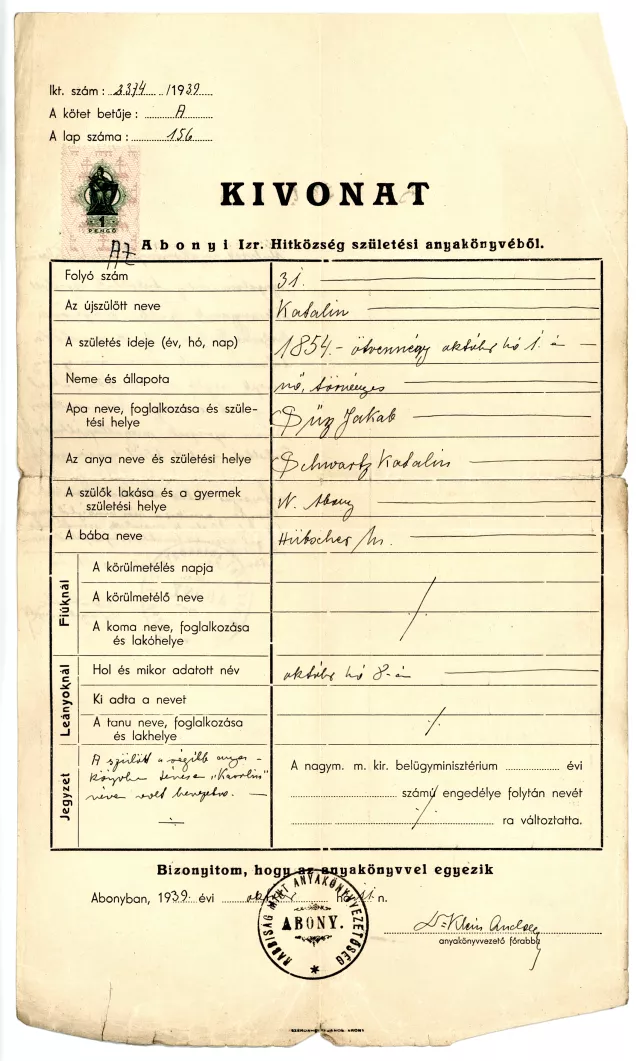 Ikt. szám: 2374 /1939
A kötet betűje: A
A lap száma: 156
1
PENGŐ
KIVONAT
Az Abonyi Izr. Hitközség születési anyakönyvéből.
Folyó szám 31.
Az újszülött neve Katalin
A születés ideje (év, hó, nap) 1854.- ötvennégy október hó 1-én
Neme és állapota nő, törvényes
Apa neve, foglalkozása és szüle-
tési helye Jakab
Az anya neve és születési helye Schwartz Katalin
A szülők lakása és a gyermek
születési helye N. Abony
A bába neve Hübscher M.
Fiúknál
A körülmetélés napja
A körülmetélő neve
A koma neve, foglalkozása
és lakóhelye
Leányoknál
Hol és mikor adatott név október hó 8-án
Ki adta a nevet
A tanu neve, foglalkozása
és lakhelye
Jegyzet
A szülött a régibb anya-
könyvben "Karolin"
néven volt bevezetve.
A nagym. m. kir. belügyminisztérium évi
számú engedélye folytán nevét
ra változtatta.
Bizonyitom, hogy az anyakönyvvel egyezik
Abonyban, 1939. évi október hó 11. n.
RABBISÁG MINT ANYAKÖNYVVEZETŐSÉG
ABONY.
Dr Klein
anyakönyvvezető főrabbi